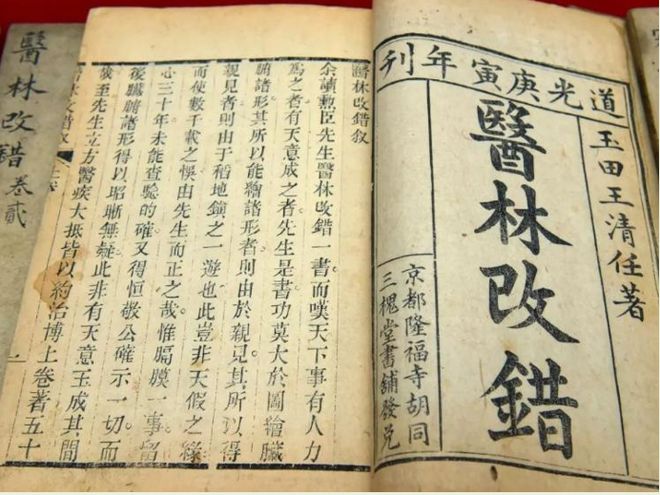 道光庚寅年刊
玉田王清任著
醫林改錯
京都隆福寺胡同
三槐堂書舖發兌
醫林改錯敘
余讀勲臣先生醫林改錯一書而嘆天下事有人力
為之者有天意成之者先生是書功莫大於圖繪臟
腑諸形其所以能繪諸形者則由於親見其所以得
親見者則由于稻地鎮之一遊也此豈非天假之緣
而使數千載之悞由先生而正之哉惟膈膜一事留
心三十年未能查驗的確又得恒敬公確示一切而
後臟腑諸形得以昭晰無疑此非有天意玉成其間
哉至先生立方醫疾大抵皆以約治博上卷著五十
醫林改錯敘
一
醫林改錯卷貳